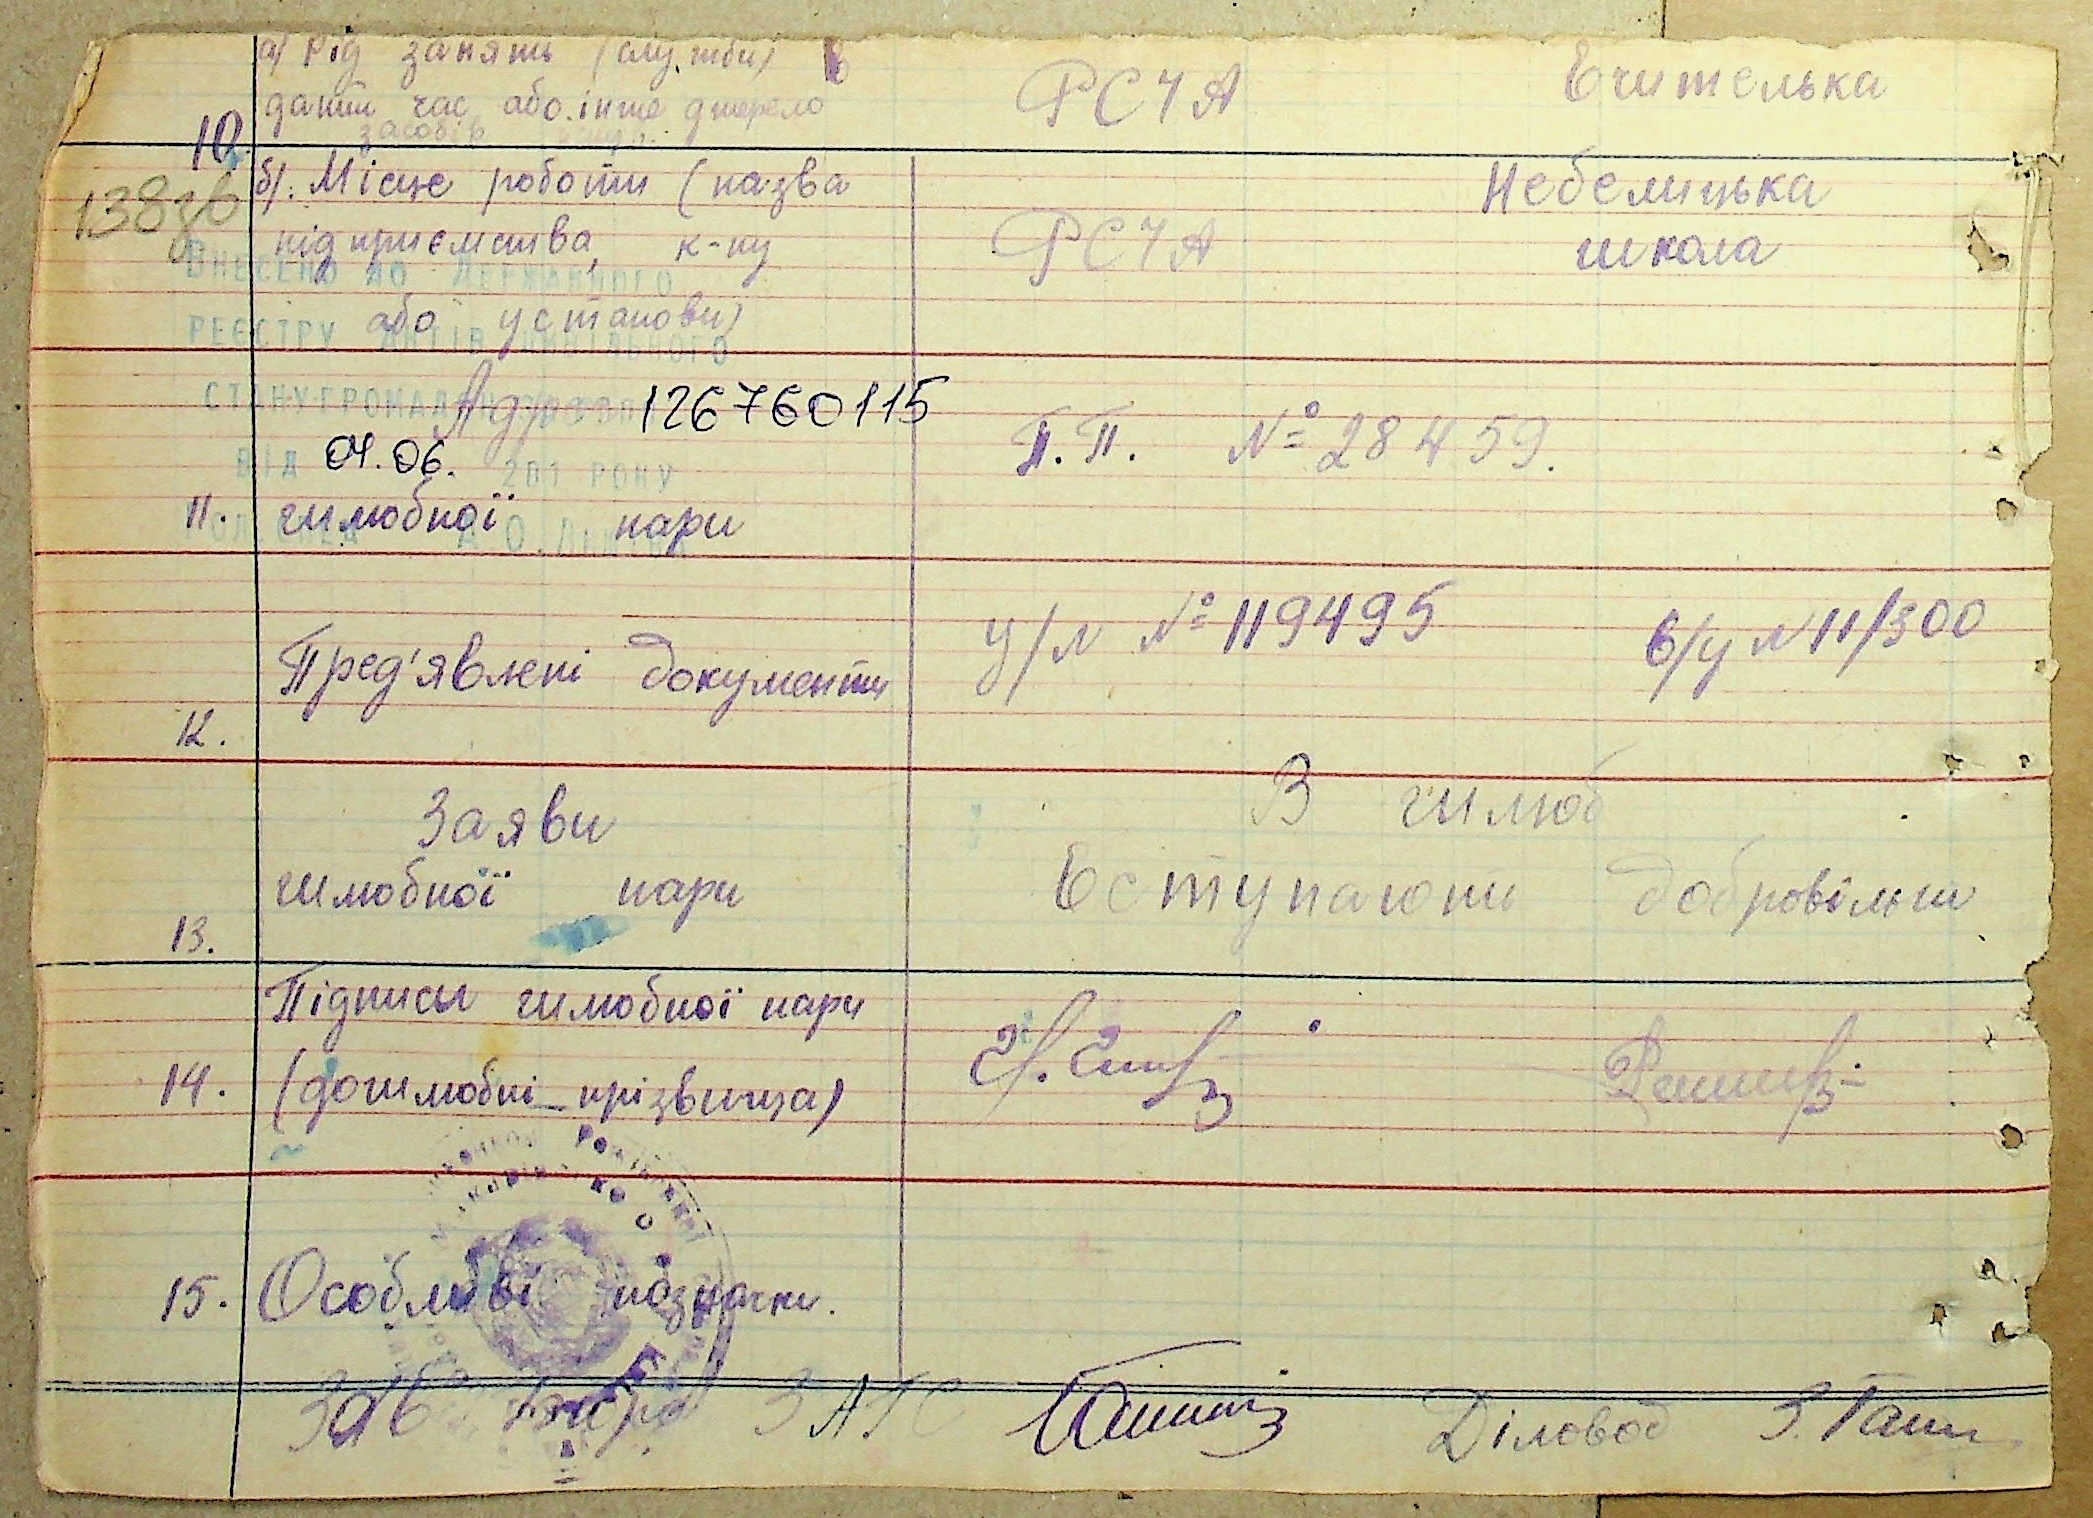 а) Рід занять (служби) в РСЧА Вчителька
даний час або інше джерело
засобів
10.
138зв
б). Місце роботи (назва Небелицька
підприємства, к-пу РСЧА школа
або установи)
ВНЕСЕНО ДО ДЕРЖАВНОГО
РЕЄСТРУ АКТІВ ЦИВІЛЬНОГО
СТАНУ ГРОМАДЯН ЗА
Адреса 126760115 П.П. № 28459.
ВІД 04.06. 201 РОКУ
11. шлюбної пари
Пред'явлені документи у/л № 119495 в/у № 11/300
12.
Заяви В шлюб
шлюбної пари вступають добровільно
13.
Підписи шлюбної пари
14. (дошлюбні прізвища)
15. Особливі позначки.
Зав. бюро ЗАГС Діловод З.